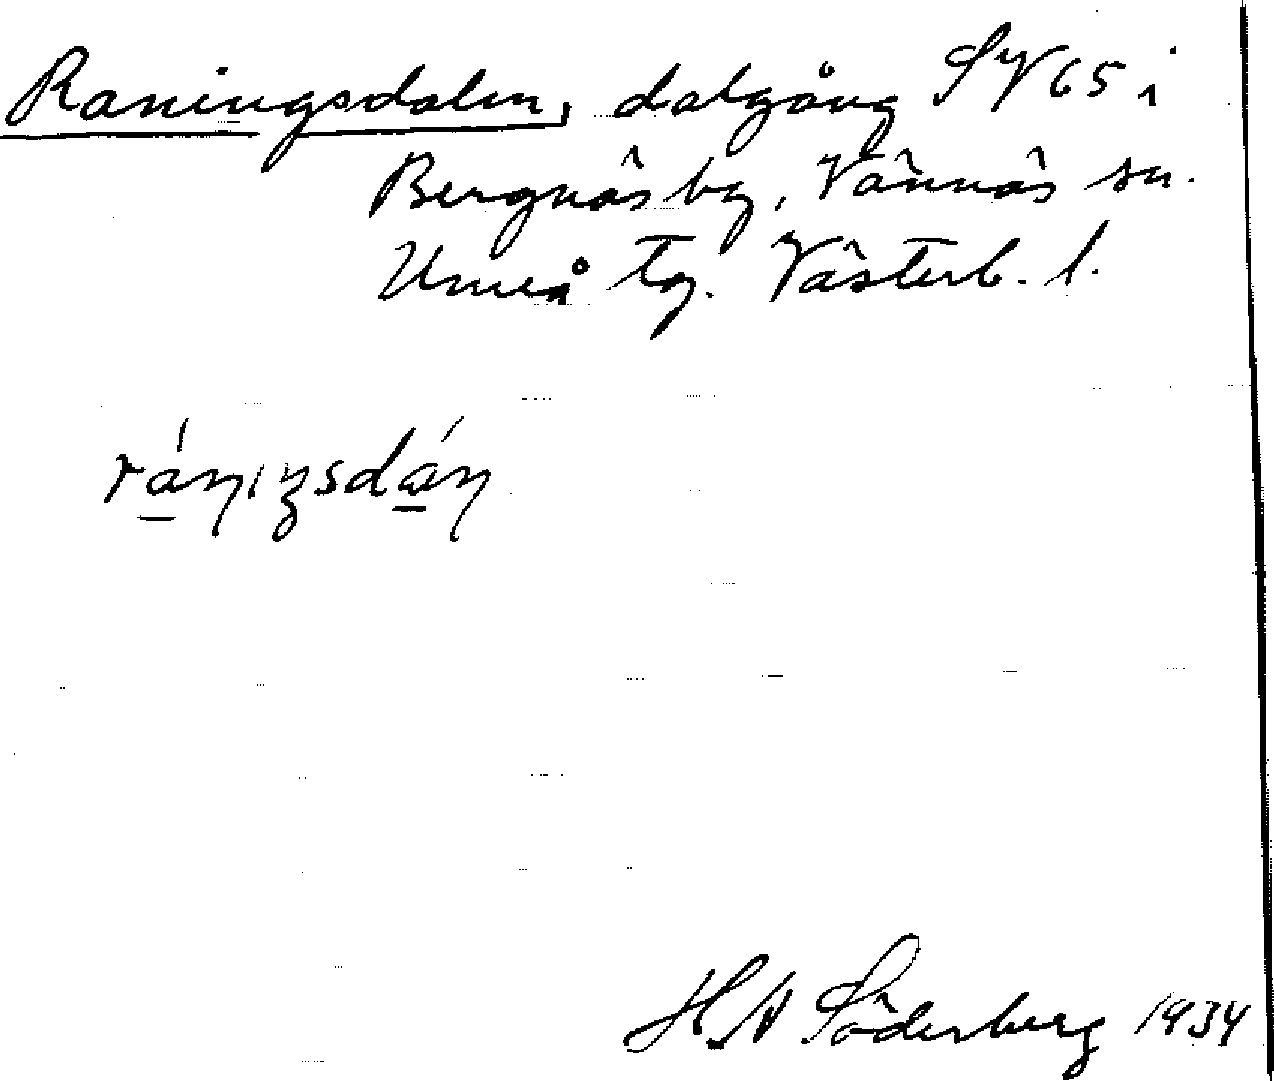 Raningsdalen, dalgång SV 65 i
Bergnäs by, Vännäs sn.
Umeå tg. Västerb. l.
ránıŋsdán
H A Söderberg 1934